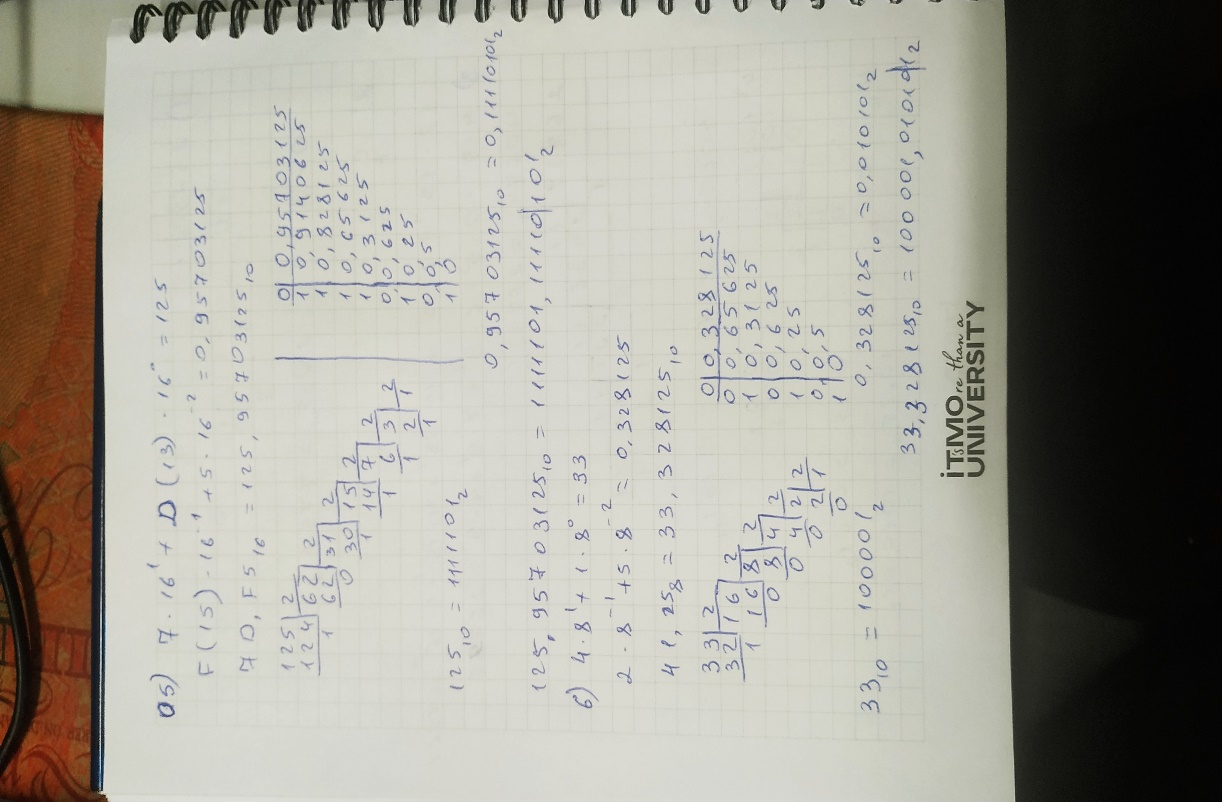 а5) 7 · 16¹ + D (13) · 16⁰ = 125
F (15) · 16⁻¹ + 5 · 16⁻² = 0,95703125
7D, F5₁₆ = 125, 95703125₁₀
125 | 2
124 | 62 | 2
1 62 | 31 | 2
0 30 | 15 | 2
1 14 | 7 | 2
1 6 | 3 | 2
1 2 | 1
1
0 | 0,95703125
1 | 0,9140625
1 | 0,828125
1 | 0,65625
1 | 0,3125
0 | 0,625
1 | 0,25
0 | 0,5
1 | 0
125₁₀ = 1111101₂
0,95703125₁₀ = 0,11110101₂
125,95703125₁₀ = 1111101,11110101₂
б) 4 · 8¹ + 1 · 8⁰ = 33
2 · 8⁻¹ + 5 · 8⁻² = 0,328125
41, 25₈ = 33, 328125₁₀
33 | 2
32 | 16 | 2
1 16 | 8 | 2
0 8 | 4 | 2
0 4 | 2 | 2
0 2 | 1
0
0 | 0,328125
0 | 0,65625
1 | 0,3125
0 | 0,625
1 | 0,25
0 | 0,5
1 | 0
33₁₀ = 100001₂
0,328125₁₀ = 0,010101₂
33,328125₁₀ = 100001,010101₂
ITSMOre than a
UNIVERSITY